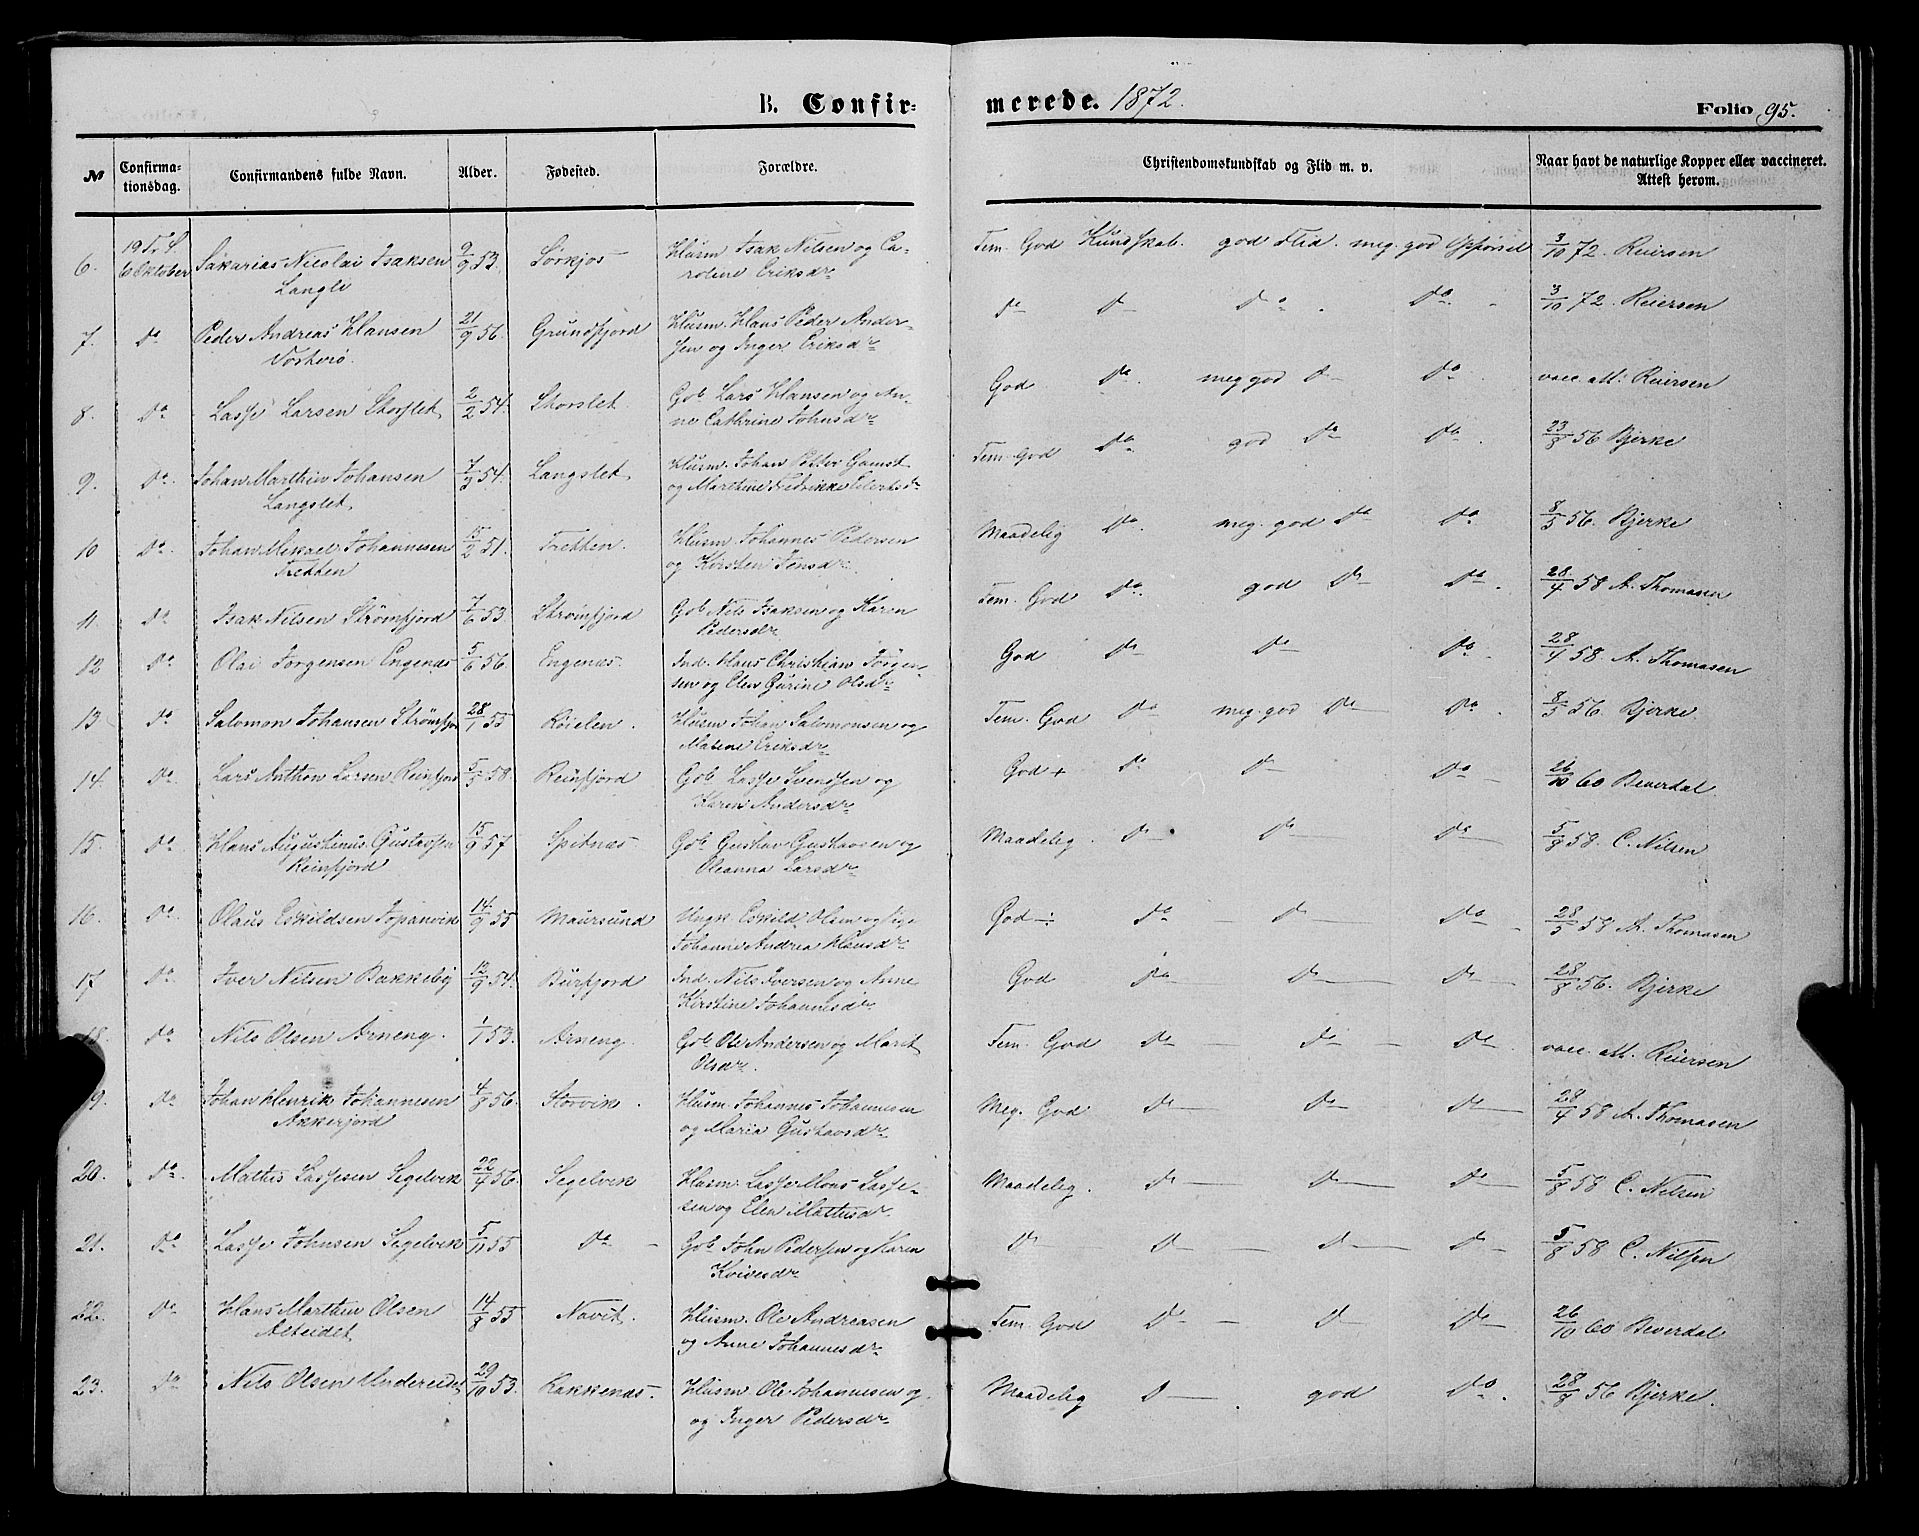 B. Confir-
merede. 1872.
Folio 95.
№ Confirma-tionsdag. Confirmandens fulde Navn. Alder. Fødested. Forældre. Christendomskundskab og Flid m. v. Naar havt de naturlige Kopper eller vaccineret. Attest herom.
19 Tr. S.
6. 6 Oktober Sakarias Nicolai Isaksen 9/9 53. Sørkjos Husm Isak Nilsen og Ca- Tem. God Kundskab. god Flid. meg. god Opførsel 3/10 72. Reiersen
Langli roline Eriksdr
7. Do Peder Andreas Hansen 21/9 56. Grundfjord Husm. Hans Peder Ander- Do D Do. Do 3/10 72. Reiersen
Vorterø. sen og Inger Eriksdr
8. Do Lasse Larsen Storslet 2/2 54. Storslet. Gbr Lars Hansen og An- God Do. meg god D Do vacc. att: Reiersen
ne Cathrine Johnsdr
9. Do. Johan Marthin Johansen 54. Langslet Husm. Johan Petter Gamst Tem. God Do. god Do Do 23/8 56 Bjerke
Langslet og Marthine Fredrikke Eilertsdr
10 Do. Johan Mikael Johannesen 15/2 51. Tretten. Husm. Johannes Pedersen Maadelig Do. meg. god Do Do 8/5 56. Bjerke
Tretten og Kirsten Jensdr.
11. Do Isak Nilsen Strømfjord 7/6 53. Strømfjord Gbr Nils Isaksen og Karen Tem. God Do. god Do Do. 28/4 58 A. Thomasen
Pedersdr
12 Do Olai Jørgensen Engenæs 5/6 56. Engenæs. Ind. Hans Christian Jørgen- God Do Do Do. 28/4 58. A. Thomasen
sen og Elen Gurine Olsdr
13 Do Salomon Johansen Strømfjor 28/1 55 Røielen. Husm Johan Salomonsen og Tem. God Do meg. god Do Do. 8/5 56. Bjerke.
Malene Eriksdr
14. Do. Lars Anthon Larsen Reinfjord 58. Reinfjord Gbr Lasse Svendsen og God + Do D Do 26/10 60 Beverdal.
Karen Andersdr
15. Do. Hans Augustinus Gustavsen 15/9 57 Spitnæs Gbr Gustav Gustavsen og Maadelig. Do Do Do 5/8 58. C. Nilsen
Reinfjord Oleanna Larsdr
16. Do. Olaus Eskildsen Jopanvik 14/9 55 Maursund Ungk Eskild Olsen og Pige God -: Do D Do 28/5 58 A. Thomasen
Johanne Andrea Hansdr
17 Do Iver Nilsen Bakkeby 12/9 54. Burfjord Ind. Nils Iversen og Anne God Do D D 28/8 56. Bjerke
Kirstine Johannesdr.
18. Do Nils Olsen Arneng. 1/1 53. Arneng. Gbr Ole Andersen og Marit Tem. God Do Do Do vacc. att. Reiersen
Olsdr.
9. Do Johan Henrik Johannesen 4/8 56. Storvik. Husm. Johannes Johannesen Meg. God Do Do Do 28/4 58 A. Thomasen
Akkerfjord og Maria Gustavsdr
20. Do. Mathis Lassesen Segelvik 22/4 56. Segelvik Husm. Lasse Mons Lasse- Maadelig. Do Do Do 5/8 58 C. Nilsen
sen og Elen Mathisdr
21. Do Lasse Johnsen Segelvik 5/11 55 Do Gbr John Pedersen og Karen D D D Do 5/8 58 C. Nilsen
22. Do Hans Marthin Olsen 14/8 55 Navit. Husm. Ole Andreasen Tem. God Do D Do 26/10 60 Beverdal
Alteidet og Anne Johannesdr
23. Do Nils Olsen Undereidet 29/10 53. Kakkenæs. Husm Ole Johannesen og Maadelig D god Do. 28/8 56 Bjerke.
og Inger Pedersdr